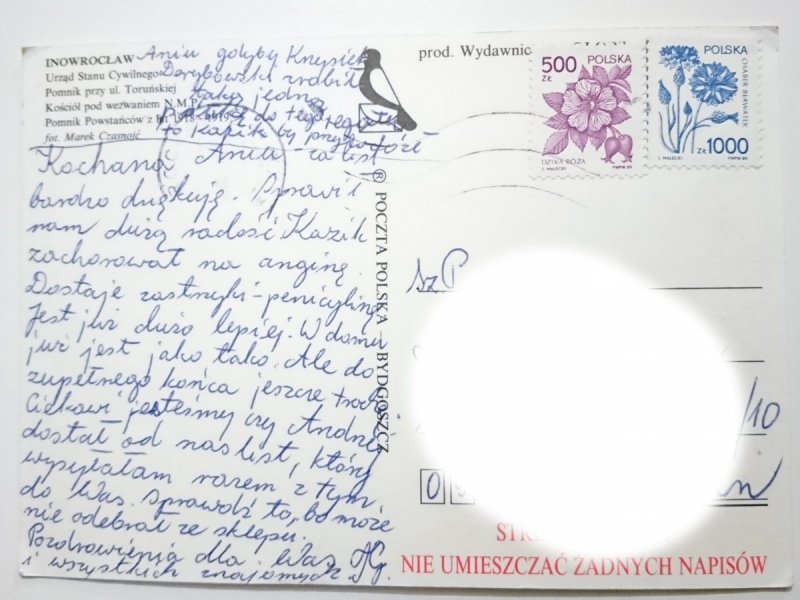 INOWROCŁAW
Urząd Stanu Cywilnego
Pomnik przy ul. Toruńskiej
Kościół pod wezwaniem N.M.P.
Pomnik Powstańców z lat 1918-1919
fot. Marek Czasnojć
prod. Wydawnic
Aniu gdyby Krzysiek
zrobił
taką jedną
do tego
to Kazik by przyjechał
Kochana Aniu - za list
bardzo dziękuję. Sprawił
nam dużą radość Kazik
zachorował na anginę.
Dostaje zastrzyki - penicylinę
Jest już dużo lepiej. W domu
już jest jako tako. Ale do
zupełnego końca jeszcze
Ciekawi jesteśmy czy Andrzej
dostał od nas list, który
wysyłałam razem z tym
do Was. Sprawdź to, bo może
nie odebrał ze sklepu.
Pozdrowienia dla Was
i wszystkich znajomych
® POCZTA POLSKA — BYDGOSZCZ
500
ZŁ
POLSKA
DZIKA RÓŻA
S. MAŁECKI
PWPW 89
POLSKA
CHABER BŁAWATEK
ZŁ 1000
S. MAŁECKI
PWPW 89
Sz P
/10
0
NIE UMIESZCZAĆ ŻADNYCH NAPISÓW